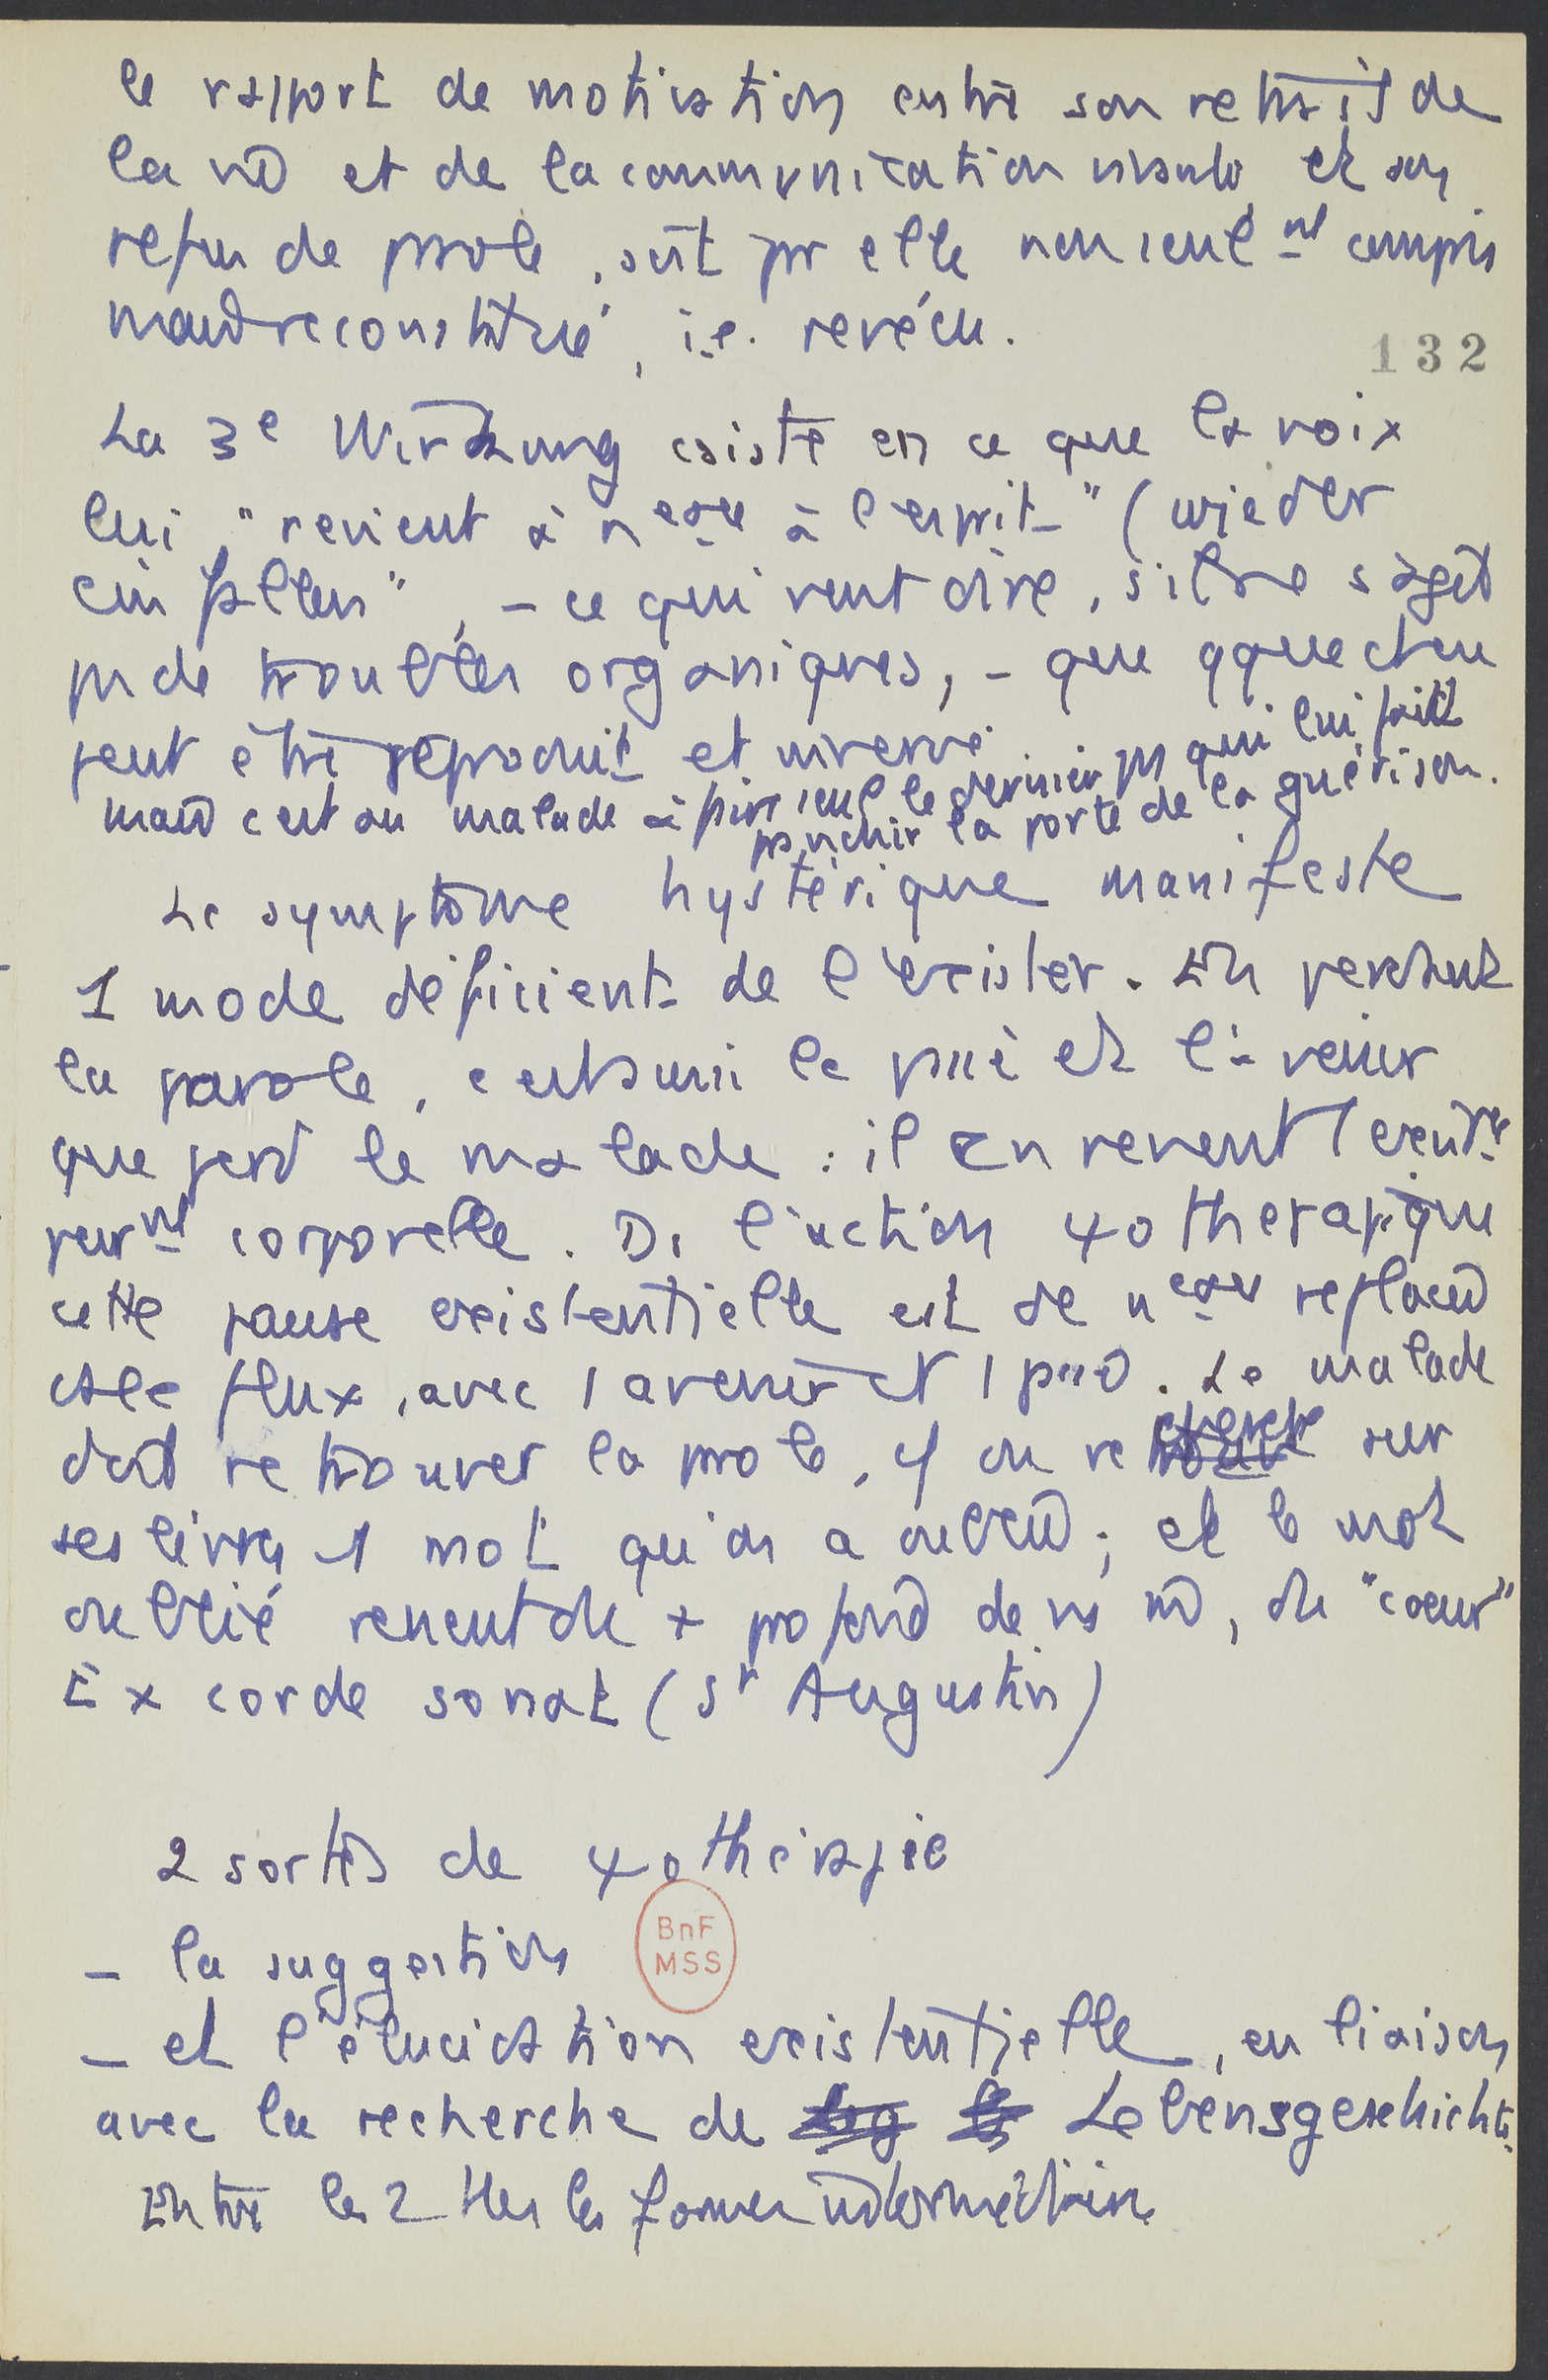 le rapport de motivation entre son retrait de
la vie et de la communication visuelle, et son
refus de parole, soit pr elle non seul^mt compris
mais reconstitué, i.e. revécu.
132
La 3e Wirkung csiste en ce que la voix
lui "revient à n^eau à l'esprit" (wieder
einfallen", - ce qui veut dire, s'il ne s'agit
pas de troubles organiques, - que qque chose
peut être reproduit et innervé.
mais c'est au malade à faire seul le dernier pas qui lui fait
franchir la porte de la guérison.
Le symptôme hystérique manifeste
1 mode déficient de l'exister. En perdant
la parole, c'est aussi le passé et l'avenir
que perd le malade : il en revient 1 existence
pur^mt corporelle. Ds l'action ψothérapique
cette pause existentielle est de n^eau replacée
ds le flux, avec 1 avenir et 1 passé. Le malade
doit retrouver la parole, cf on recherche sur
ses lèvres 1 mot qu'on a oublié; et le mot
oublié revient du + profond de ns, du "coeur"
Ex corde sonat (St Augustin)
2 sortes de ψothérapie
- la suggestion
BnF
MSS
- et l'élucidation existentielle, en liaison
avec la recherche de Lebensgeschichte.
Entre les 2 ttes les formes intermédiaires